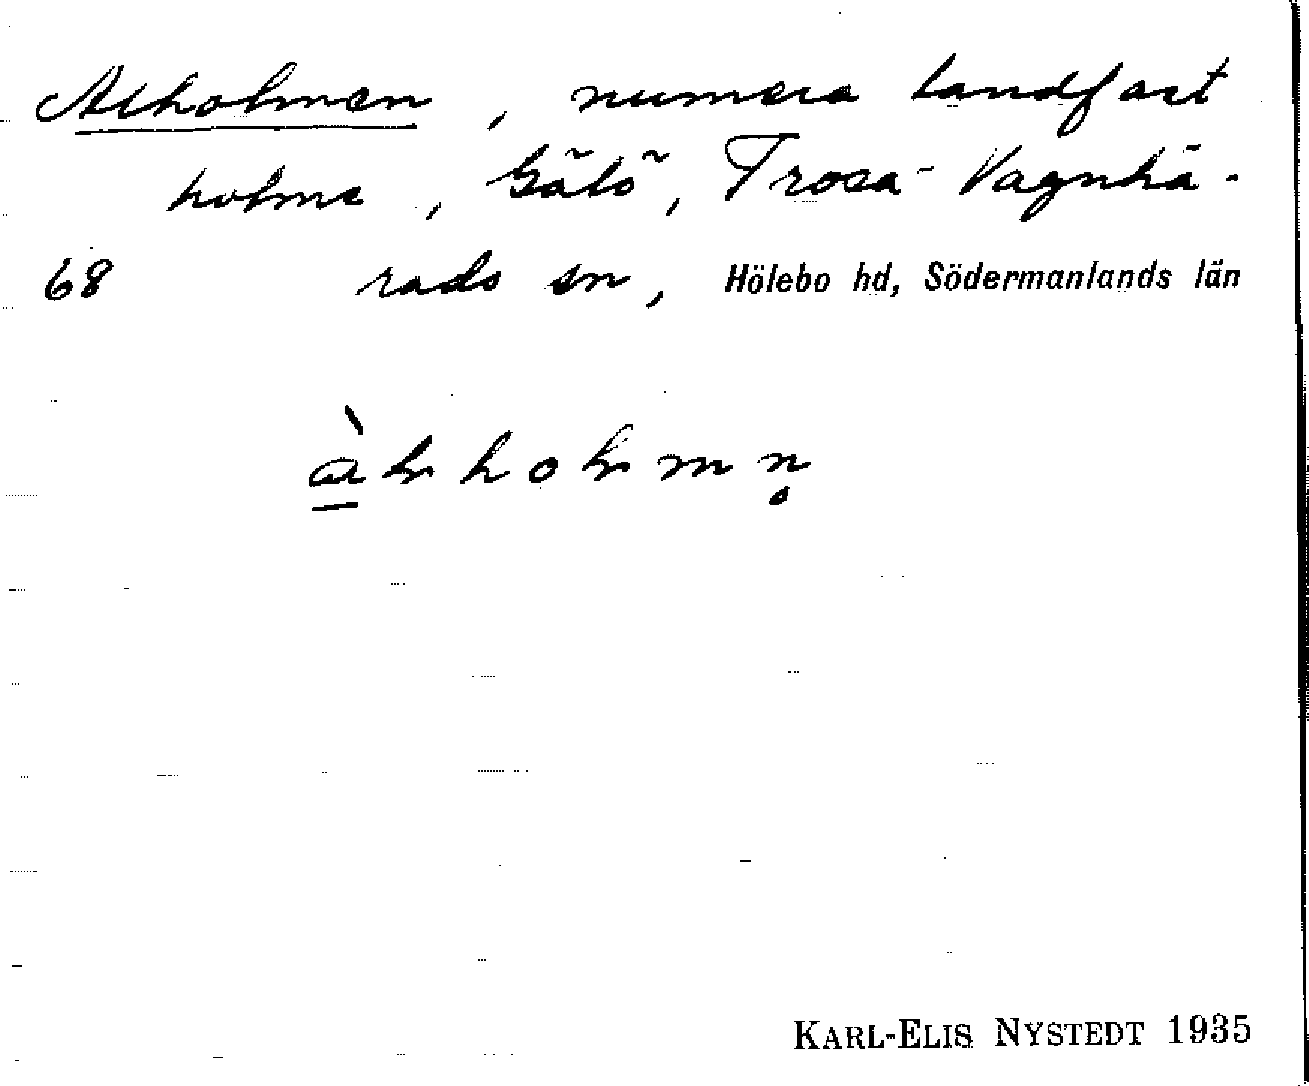 Alholmen, numera landfast
holme, Gälö, Trosa-Vagnhä-
68 rads sn, Hölebo hd, Södermanlands län
KARL-ELIS NYSTEDT 1935